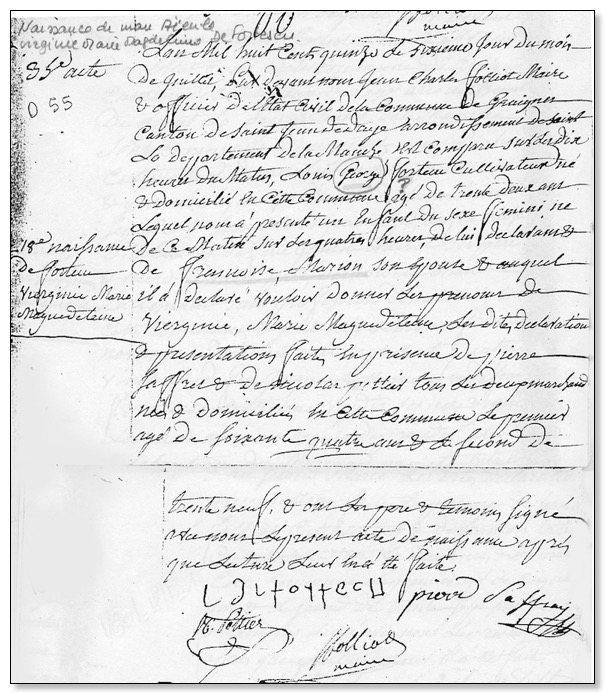 Naissance de mon Aïeule
Virginie Marie Magdeleine De Forteau
35e acte
D 55
L'an Mil huit Cent quinze Le sixieme jour du mois
De juillet, par devant nous Jean Charles folliot Maire
& officier de l'état Civil de la Commune De Graignes
Canton de Saint Jean de daye arrondissement de Saint
Lo departement de la Manche Est Comparu sur Les dix
heures du Matin, Louis George forteau Cultivateur né
& domicilié en Cette Commune agé de trente deux ans
Lequel nous a présenté un Enfant du sexe féminin, né
De Ce Matin sur Les quatre heures, de lui declarant &
De francoise, Marion son épouse & auquel
il a declaré vouloir donner Les prenoms de
Viergenie, Marie Maguedeleine Les dites declaration
& presentations faites En presence De pierre
Saffrey & de nicolas pottier tous Les deux marchand
nés & domiciliés En Cette Commune Le premier
agé De soixante quatre ans & Le second de
18e naissance
De forteau
Viergenie Marie
Maguedeleine
trente neuf, & ont Les pere & temoins signé
avec nous Le present acte De naissance après
que Lecture Leur En a été faite.
L G forteau pierre Saffrey
N. Pottier
folliot
maire